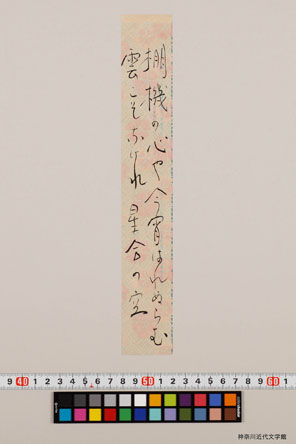 棚機の心や今宵はれぬらむ
雲こそなけれ星合の空
9 40 1 2 3 4 5 6 7 8 9 50 1 2 3 4 5 6 7 8 9 60 1
神奈川近代文学館